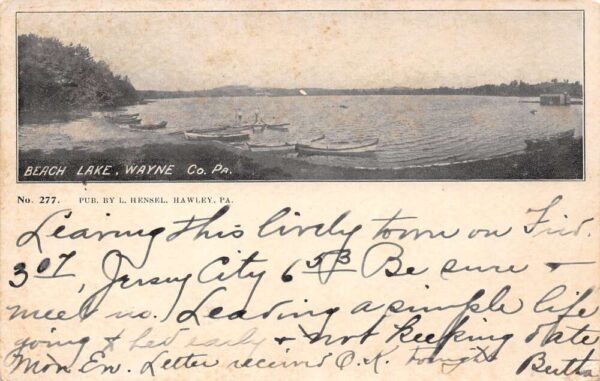 BEACH LAKE, WAYNE Co. PA.
No. 277. PUB. BY L. HENSEL, HAWLEY, PA.
Leaving this lively town on Frid.
3 07, Jersey City 6 53 Be sure +
meet us. Leading a simple life
going to bed early + not keeping late
Mon Ev. Letter received O.K. tonight Bertha